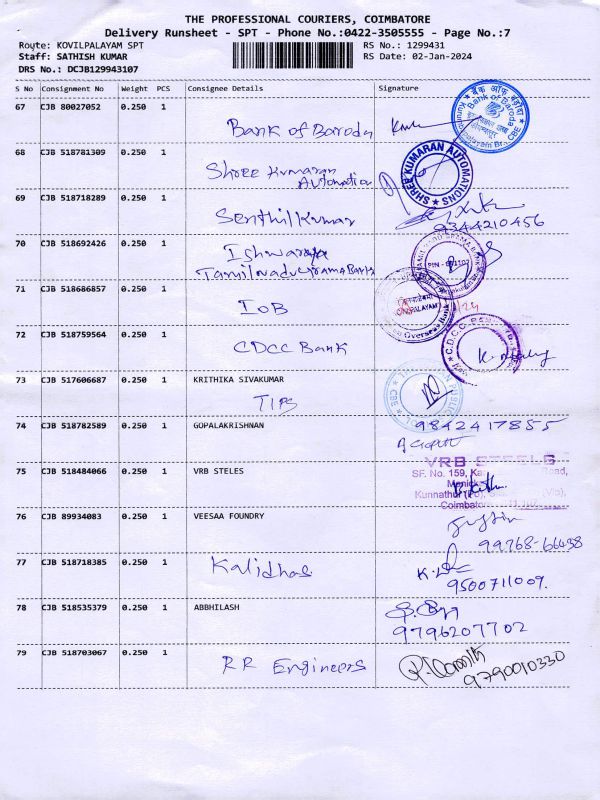 THE PROFESSIONAL COURIERS, COIMBATORE
Delivery Runsheet - SPT - Phone No.:0422-3505555 - Page No.:7
Route: KOVILPALAYAM SPT
RS No.: 1299431
Staff: SATHISH KUMAR
RS Date: 02-Jan-2024
DRS No.: DCJB129943107
S No Consignment No Weight PCS Consignee Details Signature
67 CJB 80027052 0.250 1
Bank of Baroda
बैंक ऑफ़ बड़ौदा
Bank of Baroda
68 CJB 518781309 0.250 1
Shree Kumaran
Automation
SHREE KUMARAN AUTOMATIONS
69 CJB 518718289 0.250 1
Senthilkumar
9344210456
70 CJB 518692426 0.250 1
Ishwarya
Tamilnadu Grama Bank
71 CJB 518686857 0.250 1
IOB
Overseas Bank
72 CJB 518759564 0.250 1
CDCC Bank
C.D.C.C.
73 CJB 517606687 0.250 1 KRITHIKA SIVAKUMAR
TIPS
CBE
74 CJB 518782589 0.250 1 GOPALAKRISHNAN
9842417855
75 CJB 518484066 0.250 1 VRB STELES
VRB STEELS
SF. No. 159, Road,
Kunnathur
Coimbatore
76 CJB 89934083 0.250 1 VEESAA FOUNDRY
99768-66438
77 CJB 518718385 0.250 1
Kalidhas
9500711009.
78 CJB 518535379 0.250 1 ABBHILASH
9796207702
79 CJB 518703067 0.250 1
RR Engineers
9790010330